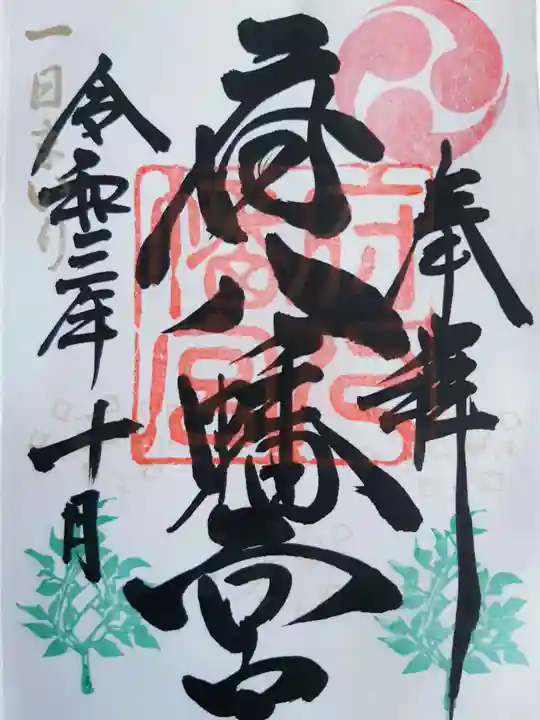 奉拝
荷八幡宮
令和二年十月
一日まいり